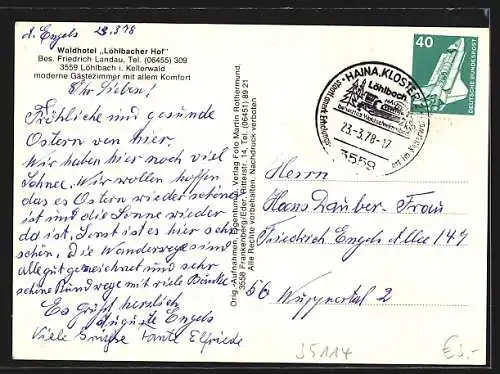 d. Engels 23.3.78
Waldhotel „Löhlbacher Hof"
Bes. Friedrich Landau, Tel. (06455) 309
3559 Löhlbach i. Kellerwald
moderne Gästezimmer mit allem Komfort
Ihr Lieben!
Fröhliche und gesunde
Ostern von hier.
Wir haben hier noch viel
Schnee. Wir wollen hoffen
das es Ostern wieder schön
ist und die Sonne wieder
da ist. Sonst ist es hier sehr
schön. Die Wanderwege sind
alle gut gezeichnet und sehr
schöne Rundwege mit viele Bänke
Es Grüßt herzlich
Auguste Engels
Viele Grüße Tante Elfriede
Orig.-Aufnahmen, Eigentum u. Verlag Foto Martin Rothermund,
3558 Frankenberg/Eder, Ritterstr. 14, Tel. (06451) 89 21
Alle Rechte vorbehalten. Nachdruck verboten
HAINA, KLOSTER
Löhlbach
23-3.78-17
3559
40
DEUTSCHE BUNDESPOST
Herrn
Hans Dauber. Frau
Friedrich Engels Allee 149
56 Wuppertal 2
J5114
E3.-